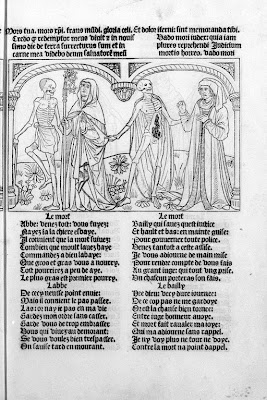 Mors tua. mors xpi. fraus mūdi. gloria celi. Et dolor iferni: sint memoranda tibi.
Credo q̄ redemptor meus viuit z in nouis
simo die de terra surrecturus sum et in
carne mea videbo deum saluatorē meū
Vado mori iudex: quia iam
plures reprehendi Judicium
mortis horreo. vado mori
Le mort
Abbe: venez tost: vous fuyez:
Nayez ia la chiere esbaye.
Il conuient que la mort suiuez:
Combien que moult lauez haye
Commandez a dieu labaye:
Que gros et gras vous a nourry.
Tost pourrirez a peu de aye.
Le plus gras est premier pourry.
Labbe
De cecy neusse point enuie:
Mais il conuient le pas passer.
Las: or nay ie pas en ma vie
Garde mon ordre sans casser.
Garde vous de trop embrasser
Vous qui viuez au demorant:
Se vous voulez bien trespasser.
On sauise tard en mourant.
Le mort
Bailly qui sauez quest iustice
Et hault et bas: en mainte guise:
Pour gouuerner toute police.
Venez tantost a ceste assise.
Je vous adiourne de main mise
Pour rendre compte de vous fais
Au grant iuge: qui tout vng prise.
Un chascun porter a son fais.
Le bailly
He dieu: vecy dure iournee:
De ce cop pas ne me gardoye
Or est la chanse bien tournee:
Entre iuges honneur auoye.
Et mort fait raualer ma ioye:
Qui ma adiourne sans rappel.
Je ny voy plus ne tour ne voye.
Contre la mort na point dappel.